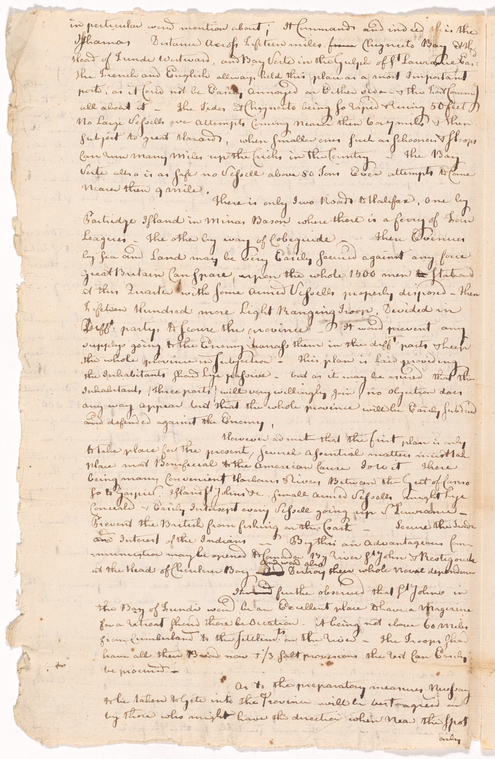 in particular word mention about; It Commands and indeed it is the
Isthamas Distance Across Fifteen miles from Chignecto Bay & the
Head of Funde Westward, and Bay Verte in the Gulph of St Laurance Eas:
The French and English allways held this place as a most Important
post, as it Could not be Easily Annoyed on Either side & the Land Commd
all about it – The Tides of Chignecto being so Rapid & Rising 50 feet
No Large Vessells ever Attempts Coming nearer then 6 or 9 miles & then
Subject to great Hazards, when smaller ones such as Schooners & Sloops
Can run many Miles up the Creeks in the Country – The Bay
Verte also is as safe no Vessell above 80 Tons Ever attempts to Come
Nearer then 9 mile.
There is only two Roads to Halifax, one by
Partridge Island in Minas Bason where there is a ferry of Four
Leagues – The other by way of Cobequide – these Evenues
by Sea and Land may be very Easily Secured against any force
great Britain Can spare, upon the whole 1500 men to Stationed
at this Quarter with some Armed Vessells properly disposed – then
Fifteen Hundred more Light Ranging Troop, Devided in
Difft party, to Scoure the province – It would prevent any
supplys going to the Enemy & harrass them in the difft parts & keep
the whole province in Subjection – This plan is laid providing
the Inhabitants should lye passive – but as it may be relied that the
Inhabitants (three parts) will very willingly Join, no objection does
any way appear but that the whole province will be Easily Subdued
and defended against the Enemy,
However admit that the first plan is only
to take place for the present, several Essential matters in
place most Benificial to the American Cause – There
being many Convenient Harbours & Rivers Between the Gut of Canso
to Gaspee, Island St Johns &c Small Armed Vessells might lye
Concealed & Easily Intersept every Vessell going up St Lawrance –
Prevent the British from fishing on the Coast Secure the Trade
and Interest of the Indians – By this an Advantageous Com-
munication may be opened to Canada By River St John & Restigouche
at the Head of Chaleur Bay and also Destroy there whole Naval dependance
It is further observed that St Johns in
the Bay of Funde would be an Excellent place to have a Magazine
for a retreat should there be Occation. It being not above 60 Miles
from Cumberland to the Settlemts on the River – The Troops shall
have all their Bread now & 1/3 Salt provisions the rest Can Easily
be procured –
As to the preparatory measures Necessary
to be taken to gete into the Province will be best agreed on
by those who might have the direction when near the Spot
only